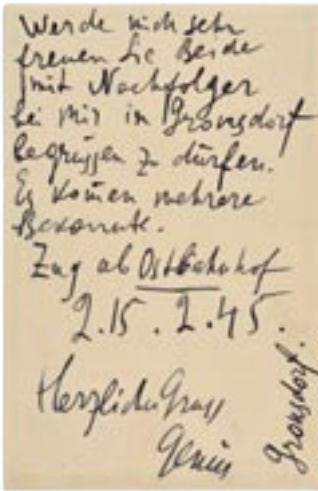 Werde mich sehr
freuen Sie Beide
mit Nachfolger
bei mir in Gronsdorf
begrüssen zu dürfen.
Es kommen mehrere
Bekannte.
Zug ab Ostbahnhof
2.15. 2.45.
Herzlichen Gruss
Gronsdorf.